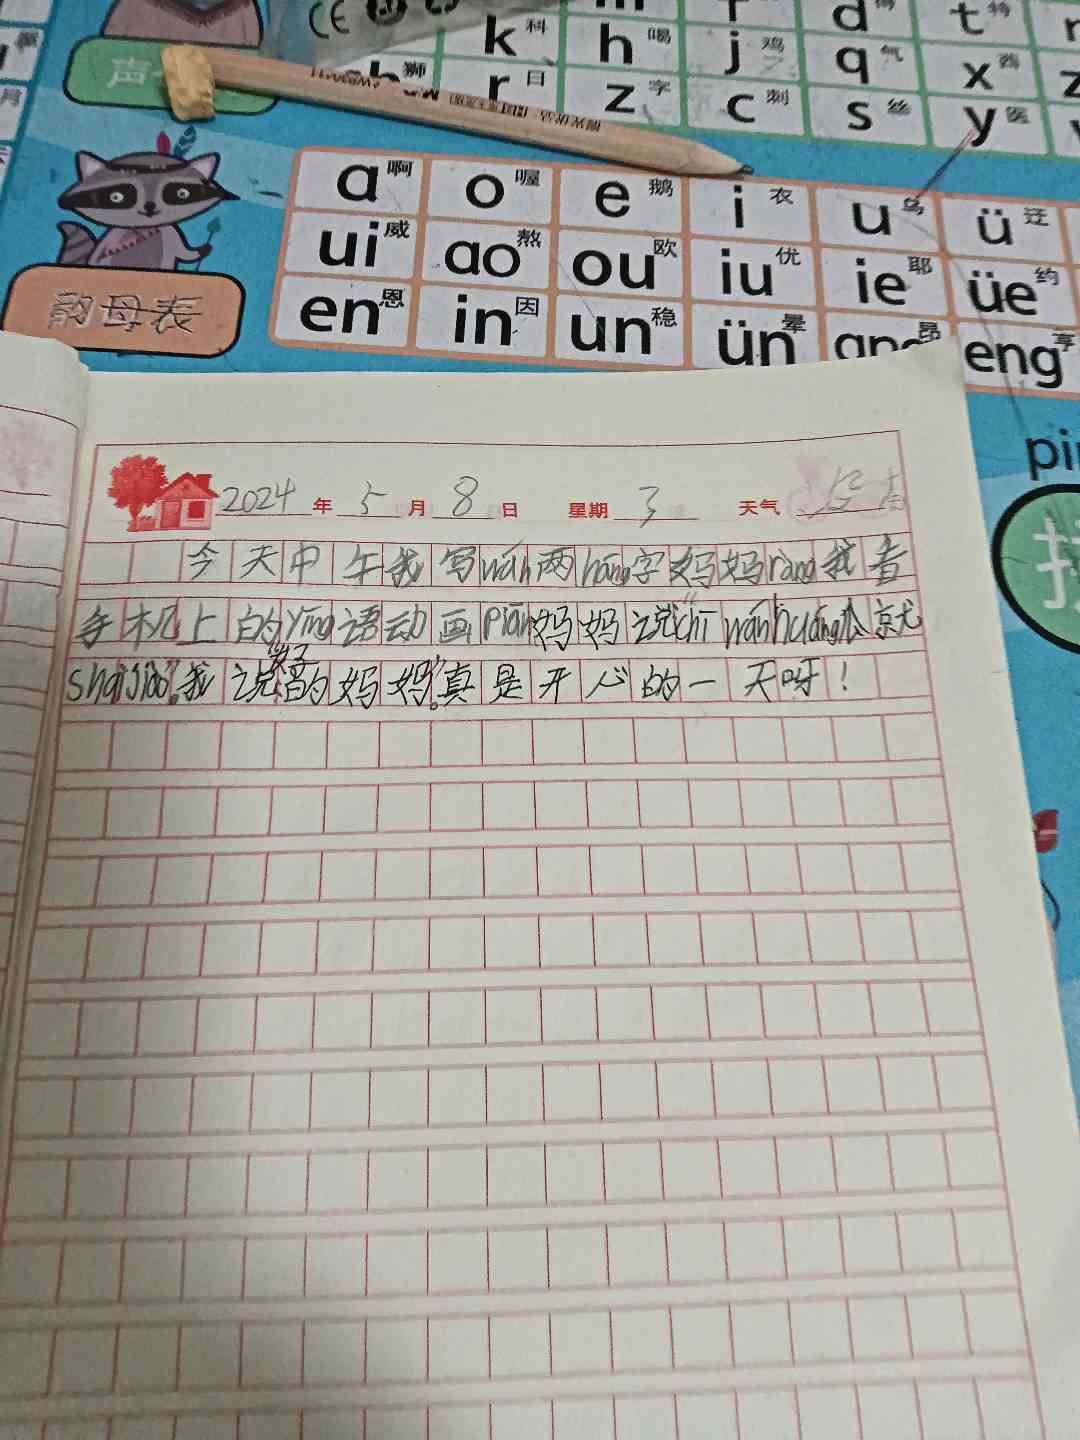 科
k
h 喝
j 鸡
d
q 气
t 特
x 西
声
狮
r 日
z 字
c 刺
s 丝
y 医
月
a 啊
o 喔
e 鹅
i 衣
u 乌
ü 迂
ui 威
ao 熬
ou 欧
iu 优
ie 耶
üe 约
en 恩
in 因
un 稳
ün 晕
ang 昂
eng 亨
韵母表
2024年5月8日 星期3 天气
今天中午我写wán两háng字妈妈ràng我看
手机上的yīng语动画piān妈妈说"chī wán huáng瓜就
shuì jiào"。我说"好的妈妈"。真是开心的一天呀!